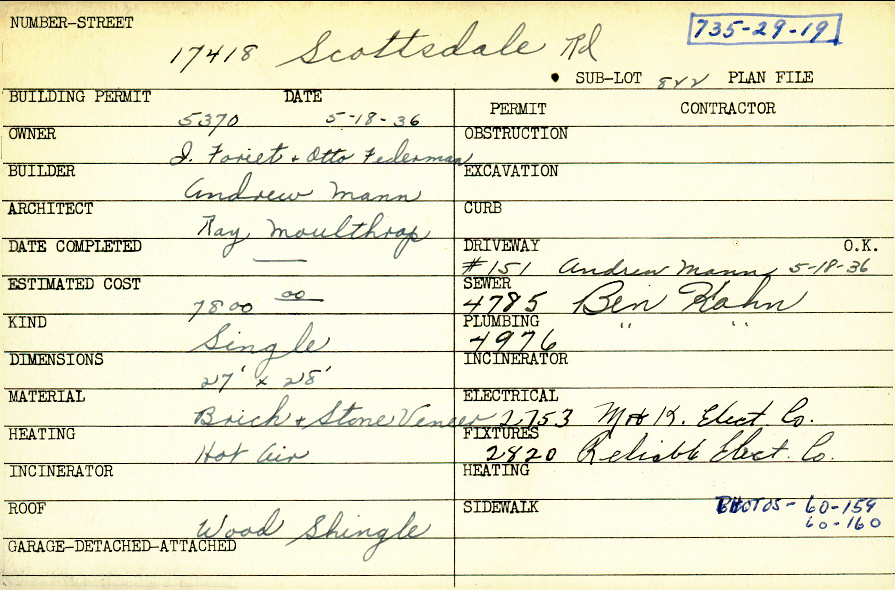 NUMBER-STREET
735-29-19
17418 Scottsdale Rd
• SUB-LOT 822 PLAN FILE
BUILDING PERMIT DATE
5370 5-18-36
PERMIT CONTRACTOR
OWNER
J. Foriet + Otto Federman
OBSTRUCTION
BUILDER
Andrew Mann
EXCAVATION
ARCHITECT
Ray Moulthrop
CURB
DATE COMPLETED
—
DRIVEWAY O.K.
#151 Andrew Mann 5-18-36
ESTIMATED COST
7800 00
SEWER
4785 Ben Kahn
KIND
Single
PLUMBING
4976 " "
DIMENSIONS
27' x 28'
INCINERATOR
MATERIAL
Brick + Stone Veneer
ELECTRICAL
2753 M + K. Elect Co.
HEATING
Hot Air
FIXTURES
2820 Reliable Elect. Co.
INCINERATOR
HEATING
ROOF
Wood Shingle
SIDEWALK
PHOTOS - 60-159
60-160
GARAGE-DETACHED-ATTACHED